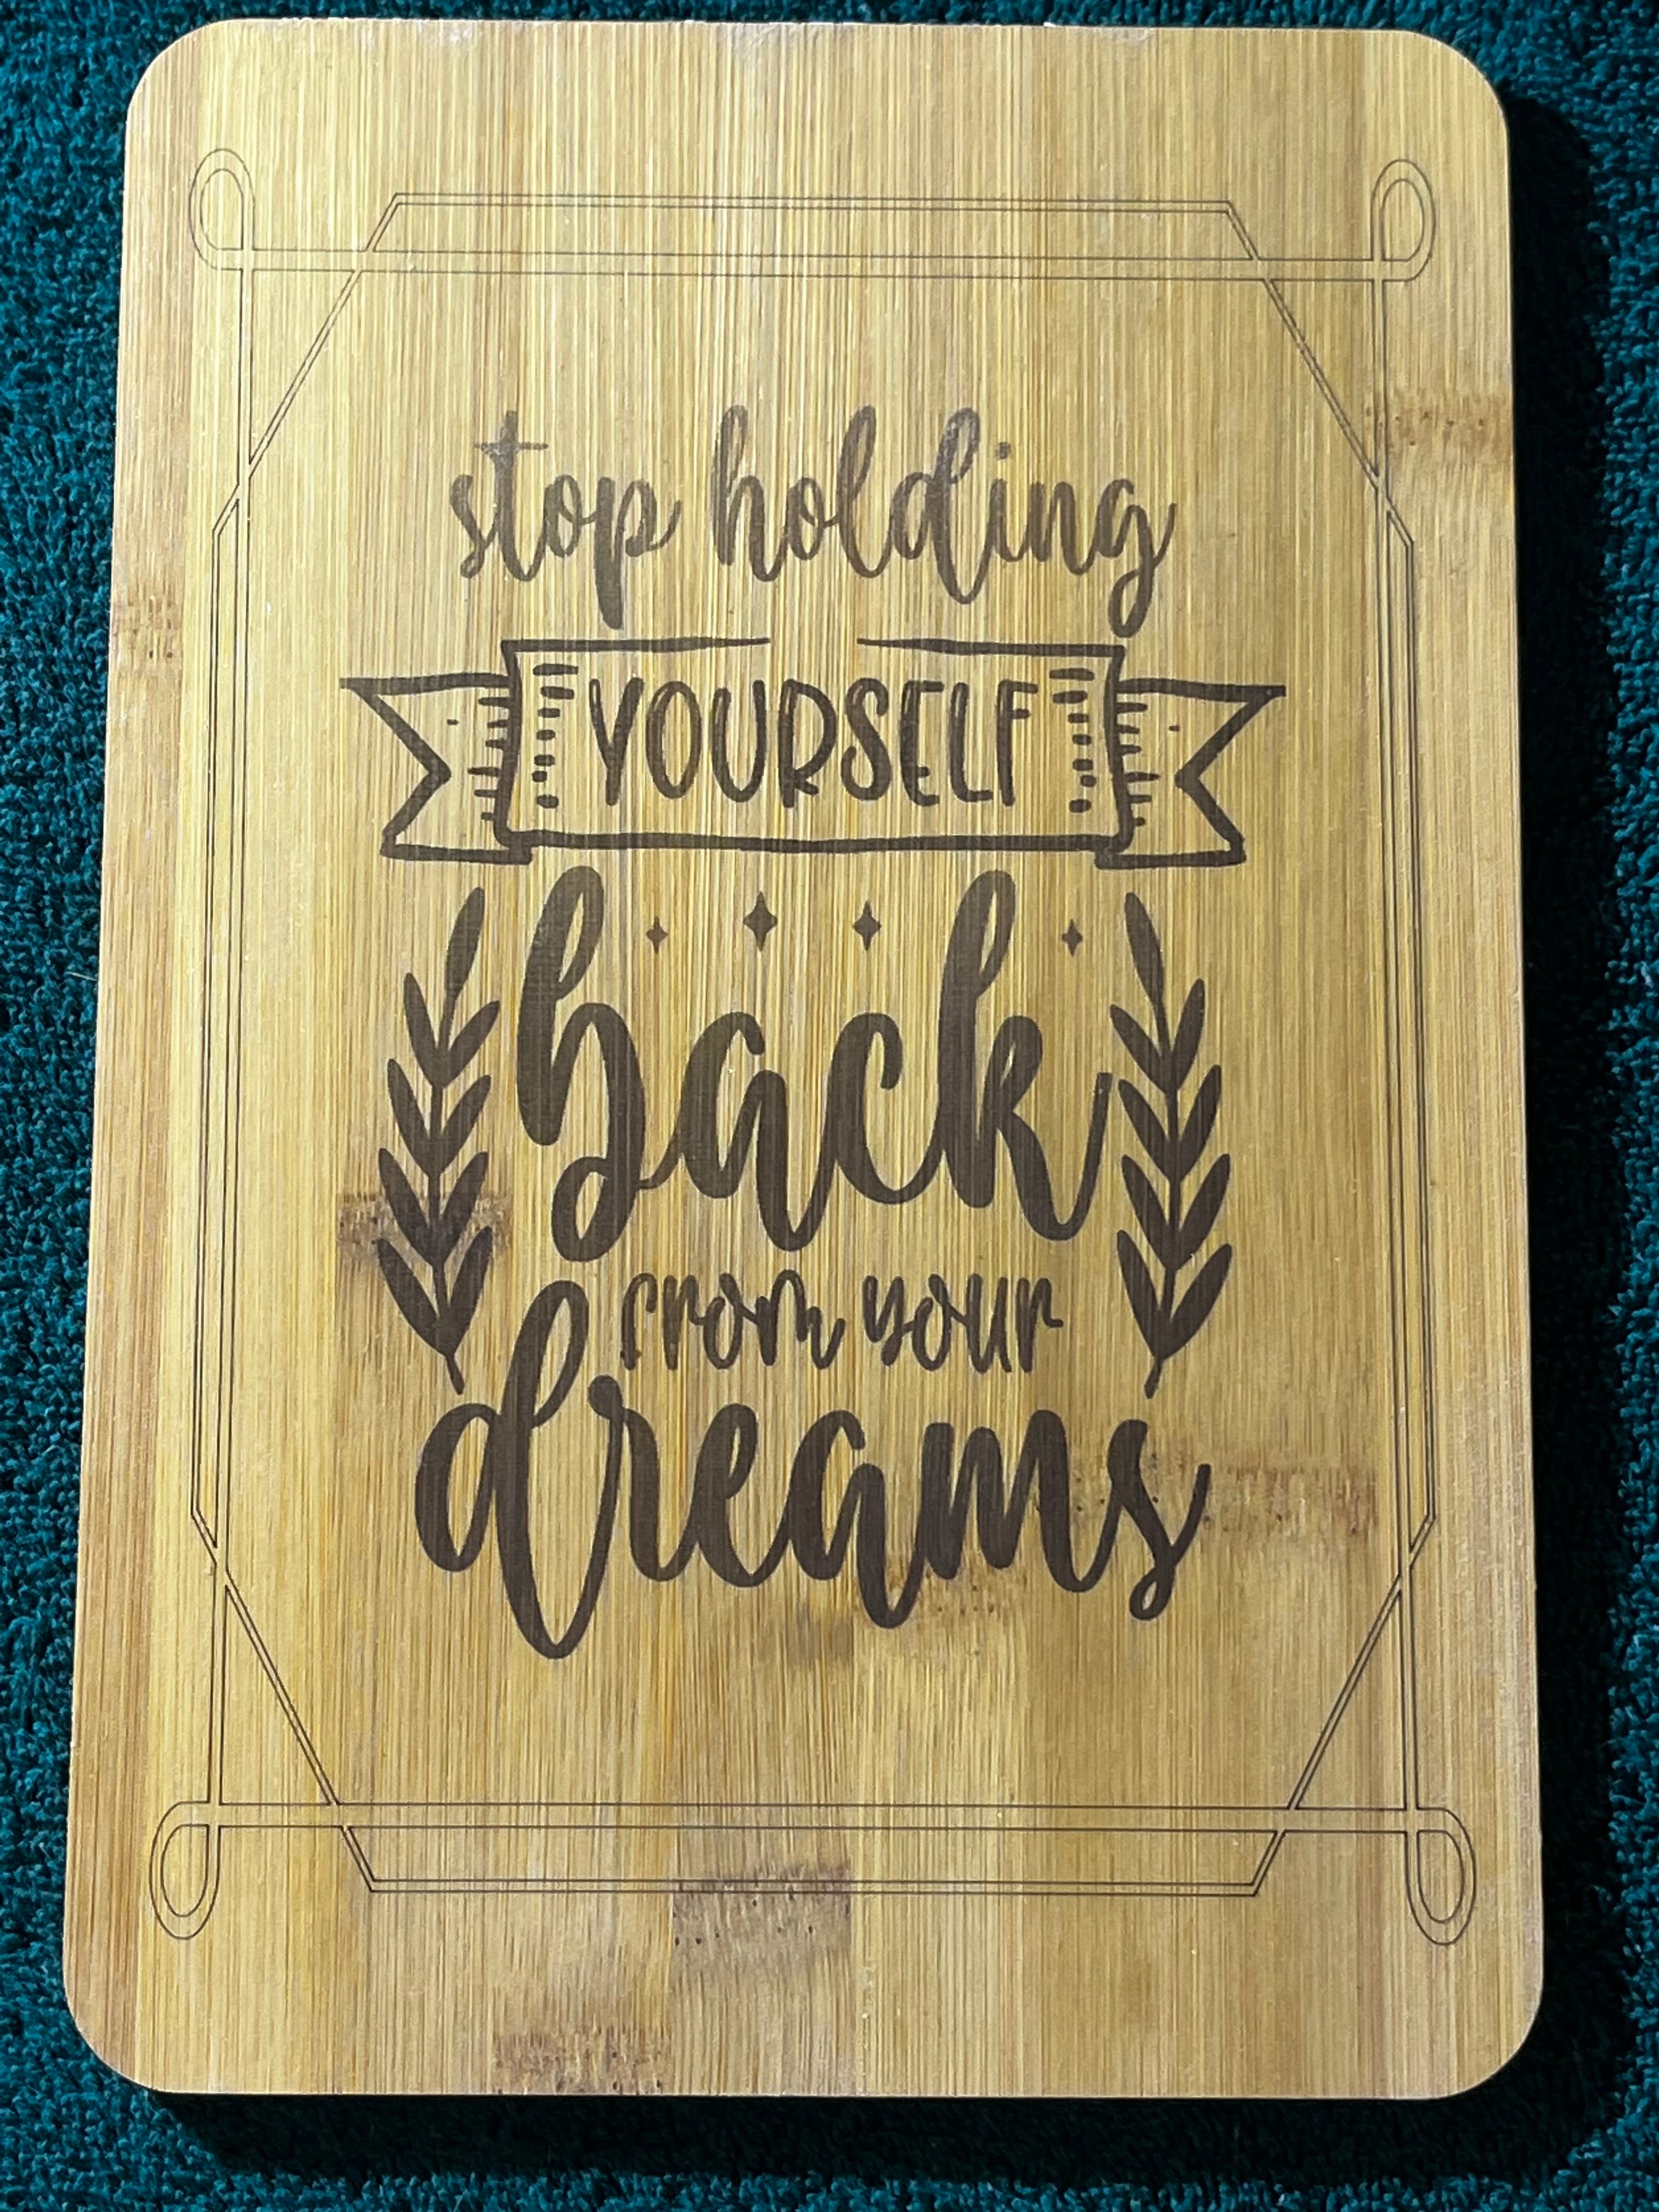 stop holding
YOURSELF
back
from your
dreams